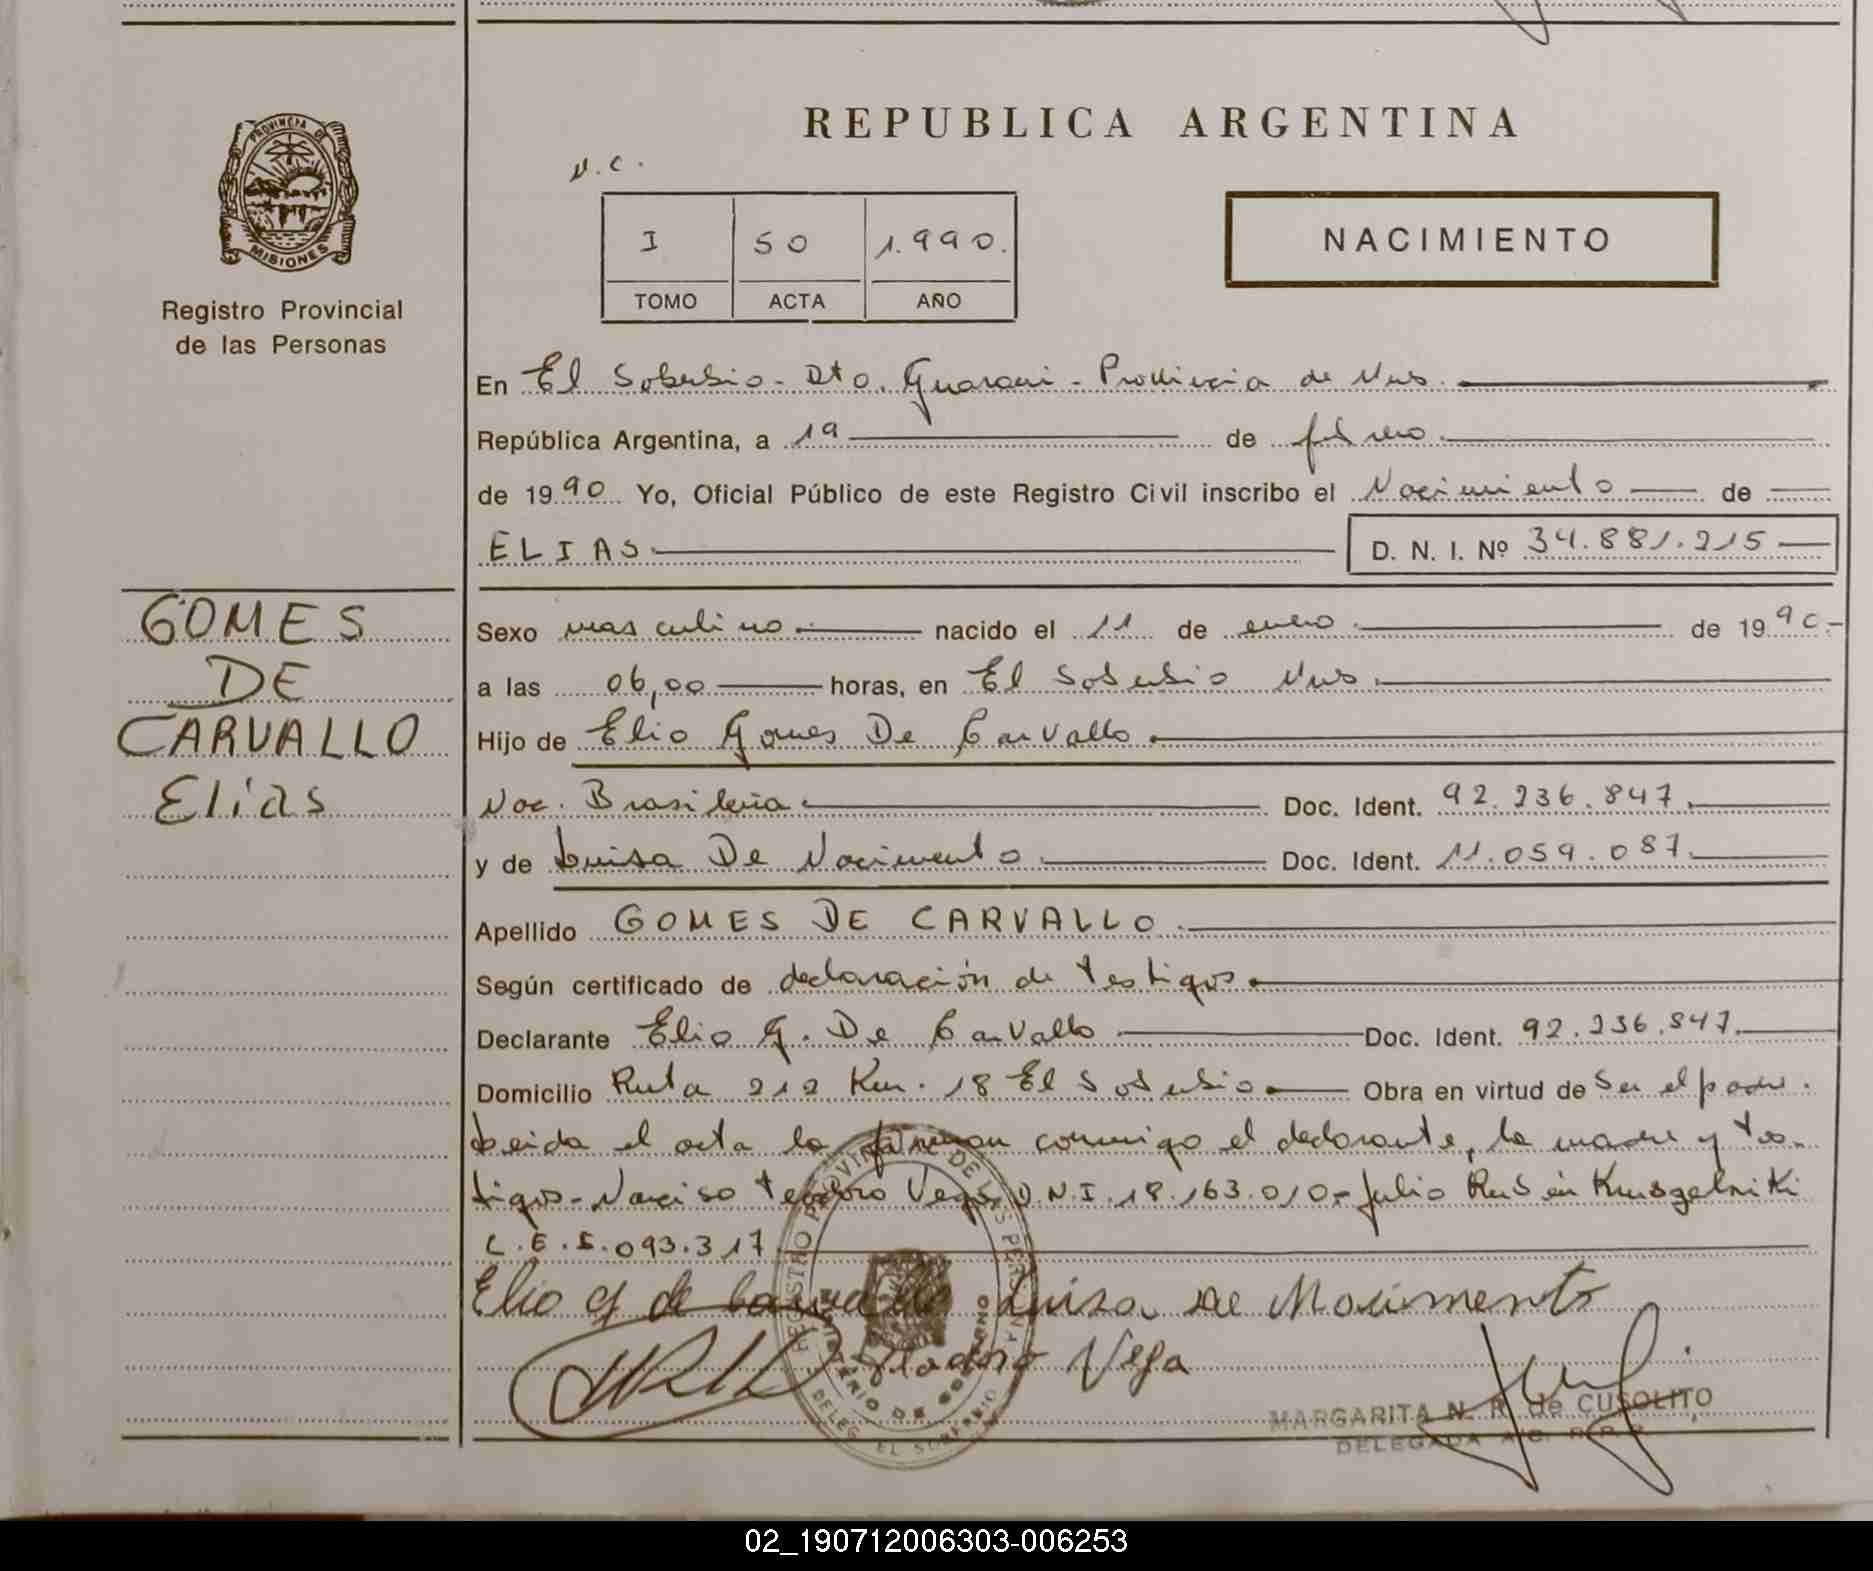 REPUBLICA ARGENTINA
PROVINCIA DE
MISIONES
Registro Provincial
de las Personas
N.C.
I 50 1.990.
TOMO ACTA AÑO
NACIMIENTO
En El Soberbio - Dto. Guarani - Provincia de Mnes.
República Argentina, a 19 de febrero
de 1990 Yo, Oficial Público de este Registro Civil inscribo el Nacimiento de
ELIAS D. N. I. Nº 34.881.215
GOMES
DE
CARVALLO
Elias
Sexo masculino nacido el 11 de enero de 1990.-
a las 06,00 horas, en El Soberbio Mnes.
Hijo de Elio Gomes De Carvallo
Nac. Brasileña Doc. Ident. 92.236.847
y de Luisa De Nacimento Doc. Ident. 11.059.087
Apellido GOMES DE CARVALLO
Según certificado de declaración de testigos
Declarante Elio G. De Carvallo Doc. Ident. 92.236.847
Domicilio Ruta 212 Km. 18 El Soberbio Obra en virtud de Ser el padre.
Leida el acta la firman conmigo el declarante, la madre y tes-
tigos - Narciso Teodoro Vega D.N.I. 18.163.010 - Julio Rubén
L.E. 093.317
Elio G de Carvallo Luisa De Nocimento
Teodoro Vega
REGISTRO PROVINCIAL DE LAS PERSONAS
MINISTERIO DE GOBIERNO
DELEG. EL SOBERBIO
MARGARITA N. R. de CUSOLITO
DELEGADA A/C. R.P.P.
02_190712006303-006253